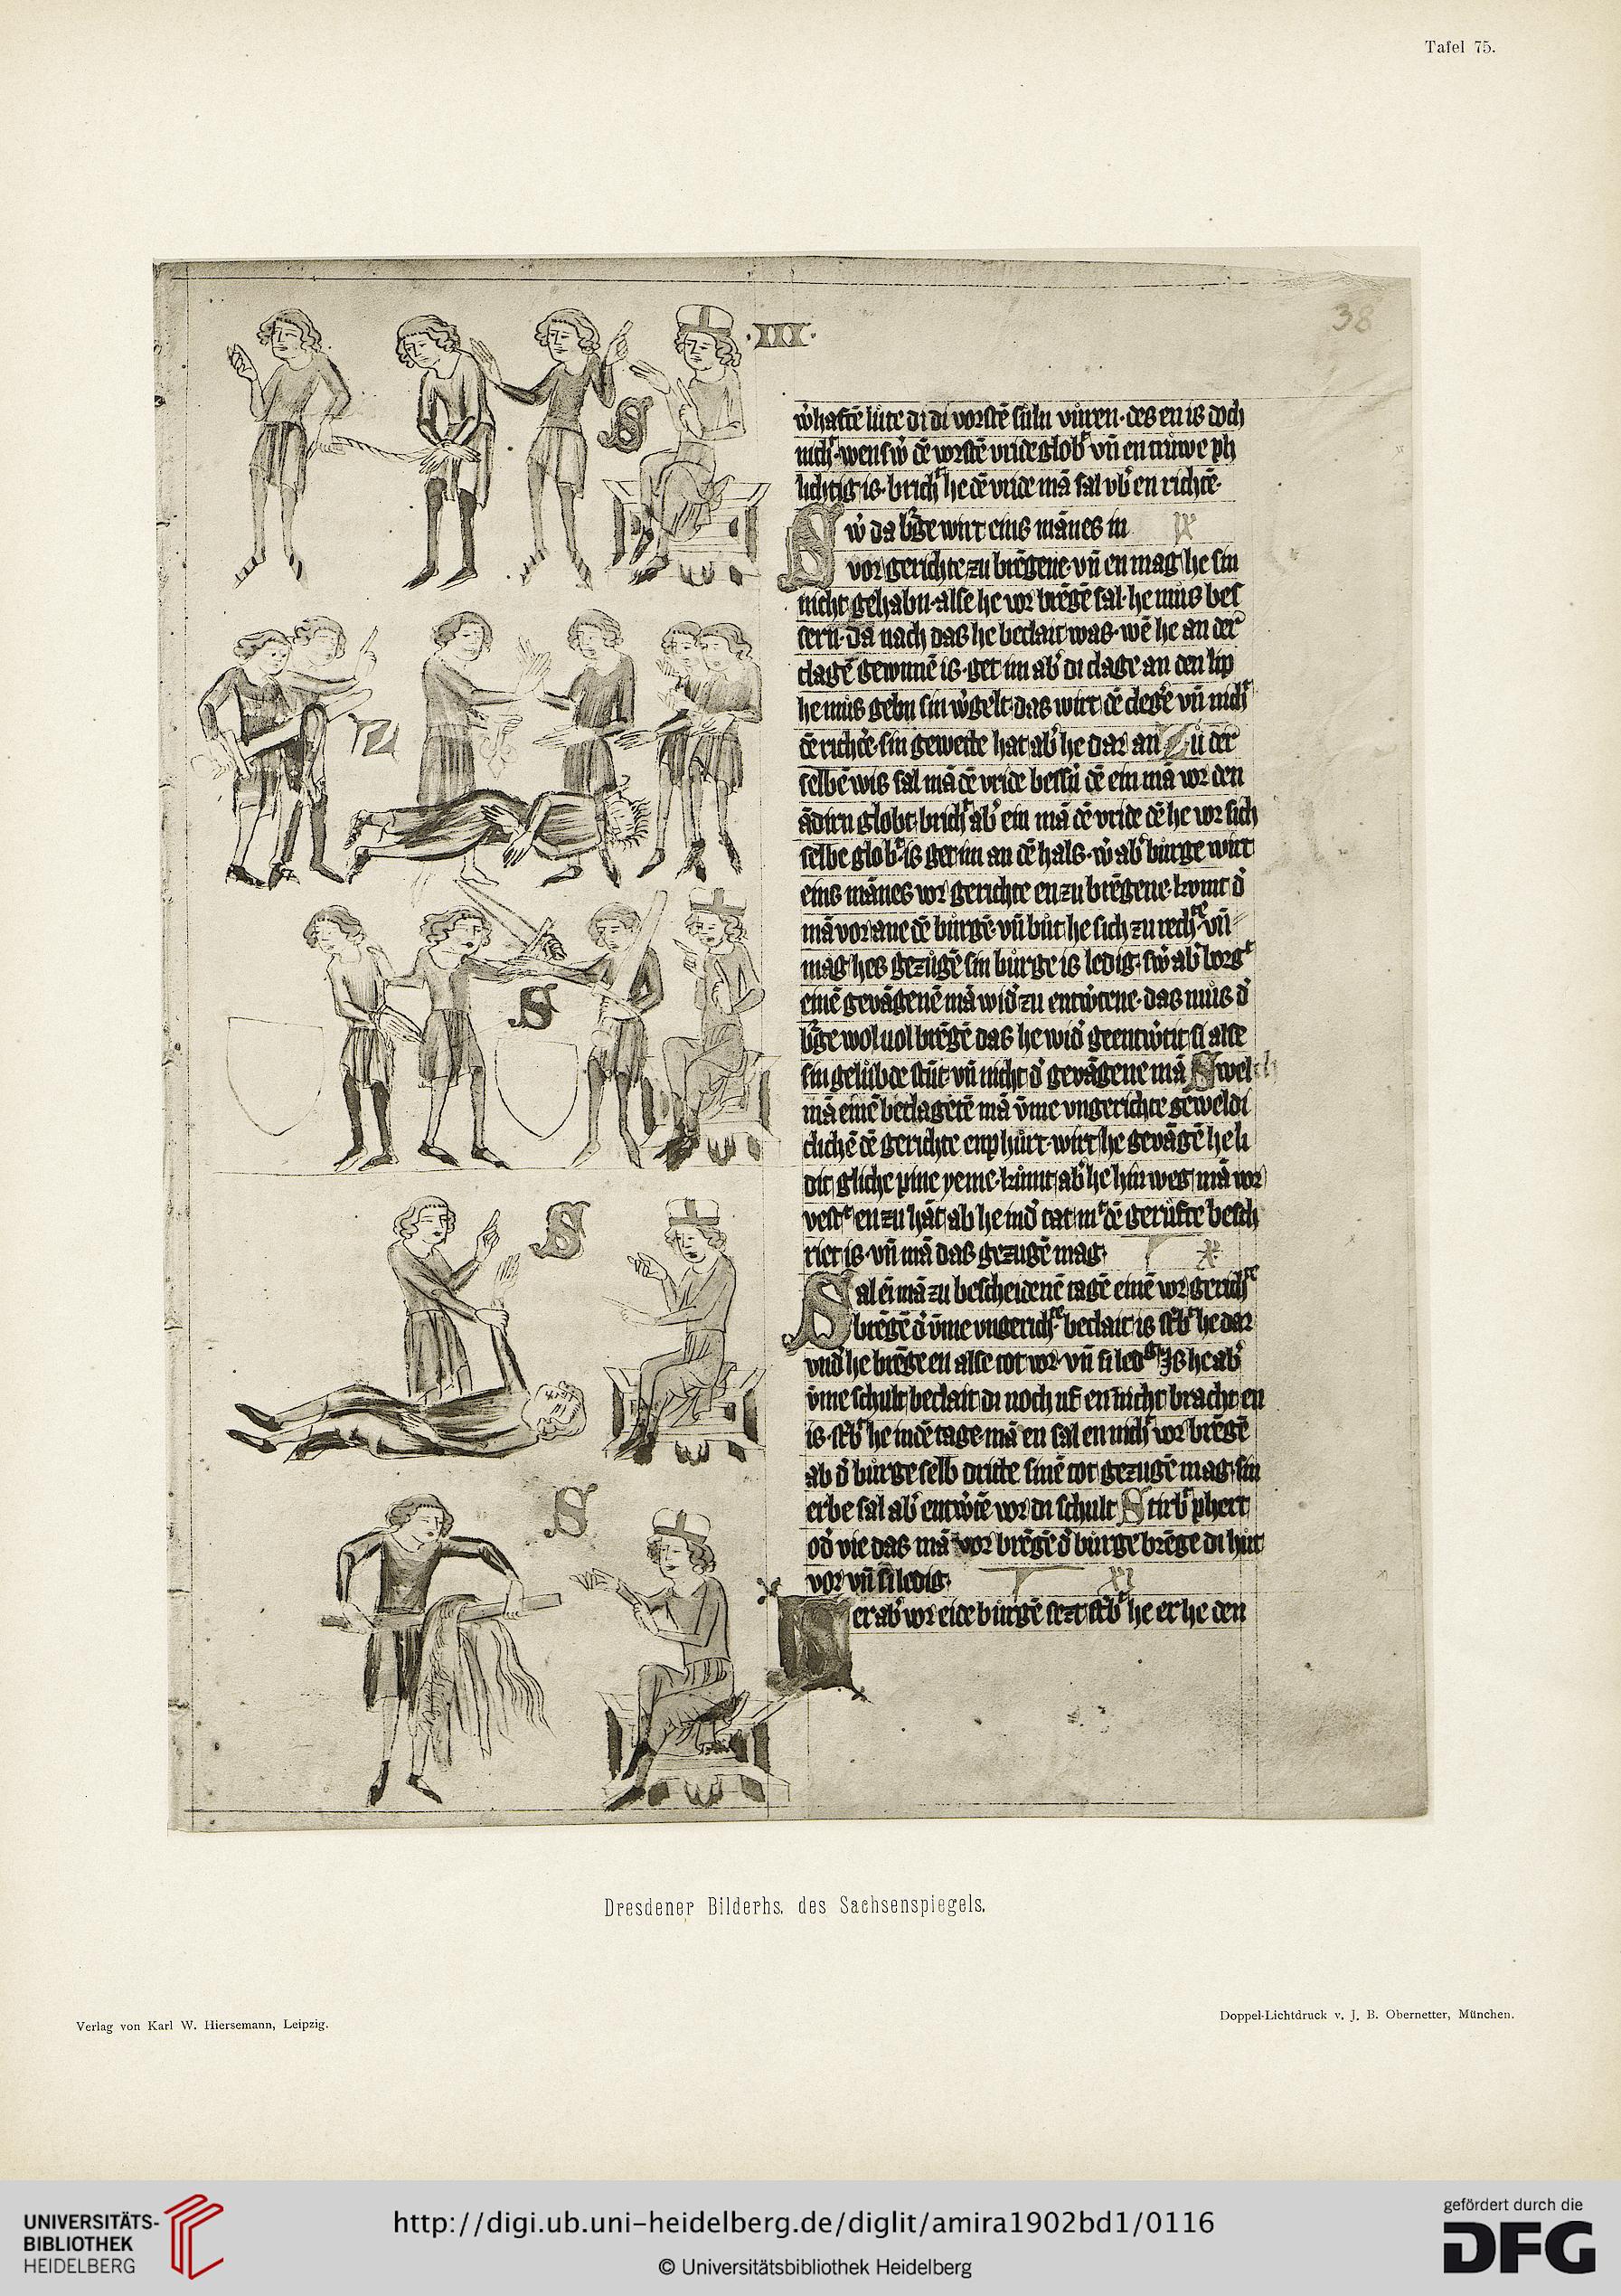 Tafel 75.
38
·III·
w̉haftē lute di di vorstē suln vuren· des en is doch
nichᵗ· wen sw̉ dē vorstē vride globᵗ vn̄ en truwe ph
lichtig is· brichᵗ he dē vride mā sal vb̉ en richtē·
Sw̉ da bᵒge wirt eins mānes in IX
vor gerichte zu brēgene· vn̄ en mag he sin
nicht gehabn· alse he vor brēgē sal· he mus bes
sern· da nach das he beclait was· wē he an der
clagē gewunnē is· get im ab̉ di clage an den lip
he mus gebn sin w̉gelt· das wirt dē clegᵉe vn̄ nichᵗ
dē richtᵉe· sin gewette hat ab̉ he dar an Zu der
selbē wis sal mā dē vride bessn̉ dē ein mā vor den
ādirn globt· brichᵗ ab̉ ein mā dē vride dē he vor sich
selbe globᵗ is get im an dē hals· w̉ ab̉ burge wirt
eins mānes vor gerichte en zu brēgene· kvmt d̉
mā vor ane dē burgē· vn̄ but he sich zu rechᵗᵉ· vn̄
mag hes gezugē sin burge is ledig· sw̉ ab̉ borgᵗ
einē gevāgenē mā wid̉ zu entw̉tene· das mus d̉
bᵒge wol uolbrēgē das he wid̉ geentw̉tit si alse
sin gelubde stut· vn̄ nicht d̉ gevāgene mā Swelch
mā einē beclagetē mā vme vngerichte geweldi
clichē dē gerichte enphurt· wirt he gevāgē he li
dit gliche pine yeme· kumt ab̉ he hin weg mā vor
vestᵗ en zu hāt ab he ind̉ tat mᵗ dē gerufte besch
riet is· vn̄ mā das gezugē mag· X
Sal ei mā zu bescheidenē tagē einē vor gerichᵗᵉ
brēgē d̉ vme vngerichᵗᵉ beclait is stᵉbᵗ he dar
vnd̉ he brēge en alse tot vor· vn̄ si ledᵍ Is he ab̉
vme schult beclait di noch uf en nicht bracht en
is· stᵉbᵗ he indē tage· mā en sal en nichᵗ vor brēgē
ab d̉ burge selb dritte sinē tot gezugē mag· sin
erbe sal ab̉ entw̉tē vor di schult Stirbᵗ phert
od̉ vie das mā vor brēgē d̉ burge brēge di hut
vor vn̄ si ledig· XI
Wer ab̉ vor eide burgē sezt stᵉbᵗ he er he den
Dresdener Bilderhs. des Sachsenspiegels.
Verlag von Karl W. Hiersemann, Leipzig.
Doppel-Lichtdruck v. J. B. Obernetter, München.
UNIVERSITÄTS-
BIBLIOTHEK
HEIDELBERG
http://digi.ub.uni-heidelberg.de/diglit/amira1902bd1/0116
© Universitätsbibliothek Heidelberg
gefördert durch die
DFG